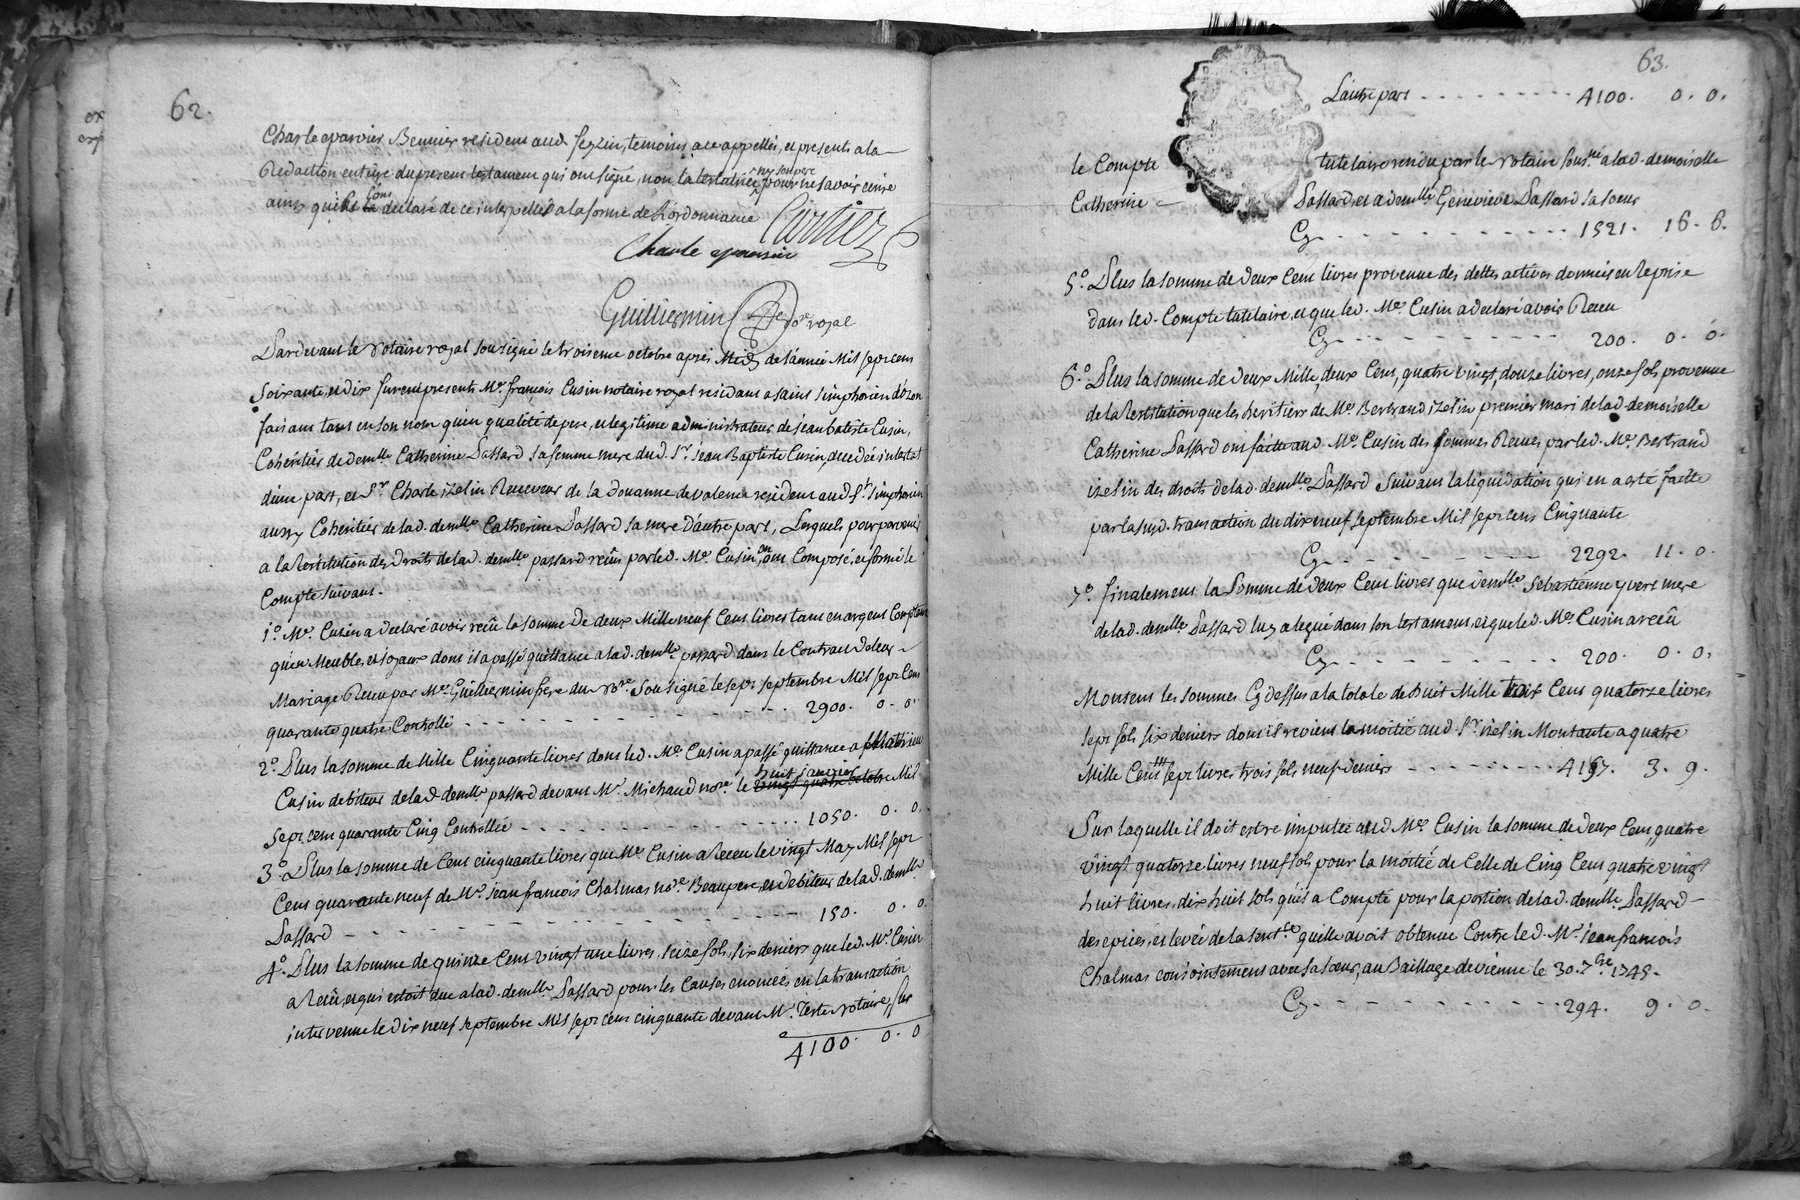 62.
Charle eparvier Bennier resident aud. seyzin, temoins a ce appellés, et presents a la
Redaction entiere du present testament qui ont signé, non la testatrice ny son pere pour ne savoir ecrire
ainsy quils ont declaré de ce interpellés a la forme de l'ordonnance
Charle eparvier
Guilliermin no.re royal
Pardevant le Notaire royal sousigné le troisieme octobre aprés Midy de l'année Mil sept cens
soixante, et dix furent presents Me. francois Cusin notaire royal residant a saint simphorien d'ozon
faisant tant en son nom qu'en qualité de pere, et legitime administrateur de jean batiste Cusin,
Coheritier de demlle. Catherine Passard sa femme mere dud. Sr. jean Baptiste Cusin, decedée intestat
d'une part, et Sr. Charle izelin Receveur de la Douanne de valence resident aud. St. simphorien
aussy Coheritier de lad. demlle. Catherine Passard sa mere d'autre part, Lesquels pour parvenir
a la Restitution des Droits de lad. demlle. passard reçûs par led. Me. Cusin, ont Composé, et formé le
Compte suivant.
1o. Me. Cusin a declaré avoir reçû la somme de deux Mille neuf Cens livres tant en argent Comptant
qu'en Meuble, et joyaux dont il a passé quittance a lad. demlle. passard dans le Contract de leur
Mariage Receu par Me. Guilliermin frere du no.re sousigné le sept septembre Mil sept Cens
quarante quatre Controllé - - - 2900. 0. 0.
2o. Plus la somme de Mille Cinquante livres dont led. Me. Cusin a passé quittance a
huit janvier
Cusin debiteur de lad. demlle. passard devant Me. Michaud no.re le vingt quatre octobre Mil
sept cens quarante Cinq Controllée - - - 1050. 0. 0.
3o. Plus la somme de Cent cinquante livres que Me. Cusin a Receu le vingt May Mil sept
Cens quarante neuf de Me. jean francois Chalmas no.re Beaupere, et debiteur de lad. demlle.
Passard - - - 150. 0. 0.
4o. Plus la somme de quinze Cens vingt une livres, seize sols, six deniers que led. Me. Cusin
a Reçû, et qui estoit due a lad. demlle. Passard pour les Causes enoncées en la transaction
intervenue le dix neuf septembre Mil sept cens cinquante devant Me. Teste notaire, sur
4100. 0. 0
63.
L'autre part - - - 4100. 0. 0.
le Compte tutelaire rendu par le Notaire sousné. a lad. demoiselle
Catherine Passard, et a demlle. Genevieve Passard sa soeur
Cy - - - 1521. 16. 6.
5o. Plus la somme de deux Cens livres provenue des dettes actives données en Reprise
dans led. Compte tutelaire, et que led. Me. Cusin a declaré avoir Receu
Cy - - - 200. 0. 0.
6o. Plus la somme de deux Mille, deux Cens, quatre vingt, douze livres, onze sols provenue
de la Restitution que les heritiers de Me. Bertrand izelin premier mari de lad. demoiselle
Catherine Passard ont faitte aud. Me. Cusin des sommes Receues par led. Me. Bertrand
izelin des droits de lad. demlle. Passard suivant la liquidation qui en a esté faitte
par la susd. transaction du dix neuf septembre Mil sept cens Cinquante
Cy - - - 2292. 11. 0.
7o. finalement la Somme de deux Cens livres que demlle. sebastienne yvert mere
de lad. demlle. Passard luy a legué dans son testament, et que led. Me. Cusin a reçû
Cy - - - 200. 0. 0.
Montent les sommes Cy dessus a la totale de huit Mille trois Cens quatorze livres
sept sols six deniers dont il revient la moitié aud. Sr. izelin Montante a quatre
Mille Cent sept livres, trois sols neuf deniers - - - 4157. 3. 9.
Sur laquelle il doit estre imputée aud. Me. Cusin la somme de deux Cens quatre
vingt quatorze livres neuf sols pour la moitié de Celle de Cinq Cens quatre vingt
huit livres, dix huit sols qu'il a Compté pour la portion de lad. demlle. Passard
des epices, et levée de la sentce. quelle avoit obtenue Contre led. Me. jean francois
Chalmas conjointement avec sa soeur, au Baillage de vienne le 30. 7bre. 1745.
Cy - - - 294. 9. 0.